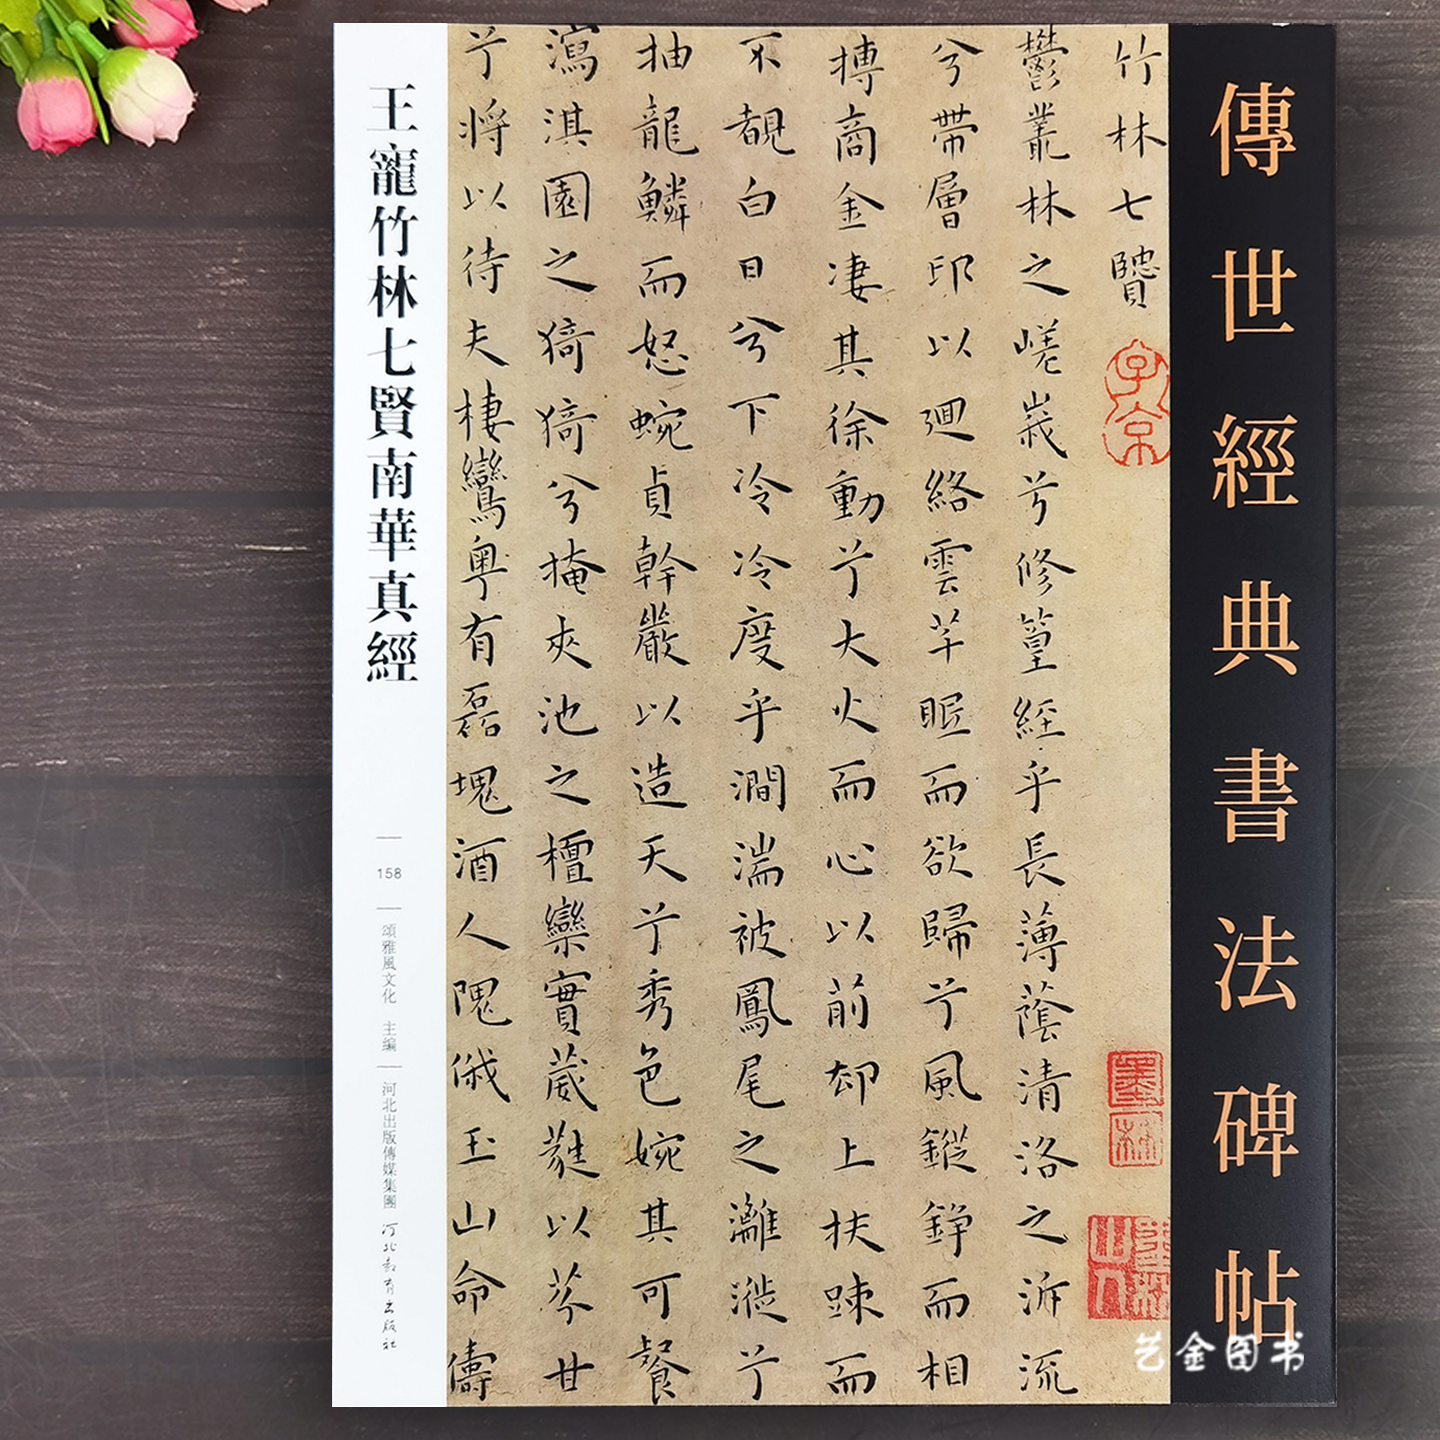 傳世經典書法碑帖
竹林七賢
鬱叢林之嵯峩兮修篁經乎長薄蔭清洛之泝流
兮帶層邱以迴絡雲芊眠而欲歸兮風鏦錚而相
摶商金凄其徐動兮大火而心以前却上扶踈而
不覩白日兮下冷冷度乎澗湍被鳳尾之灕漇兮
抽龍鱗而怒蜿貞幹嚴以造天兮秀色婉其可餐
瀉淇園之猗猗兮掩夾池之檀欒實葳蕤以芬甘
兮將以待夫棲鸞粵有磊塊酒人隗俄玉山命儔
王寵竹林七賢南華真經
158
頌雅風文化 主編
河北出版傳媒集團
河北教育出版社
艺金图书